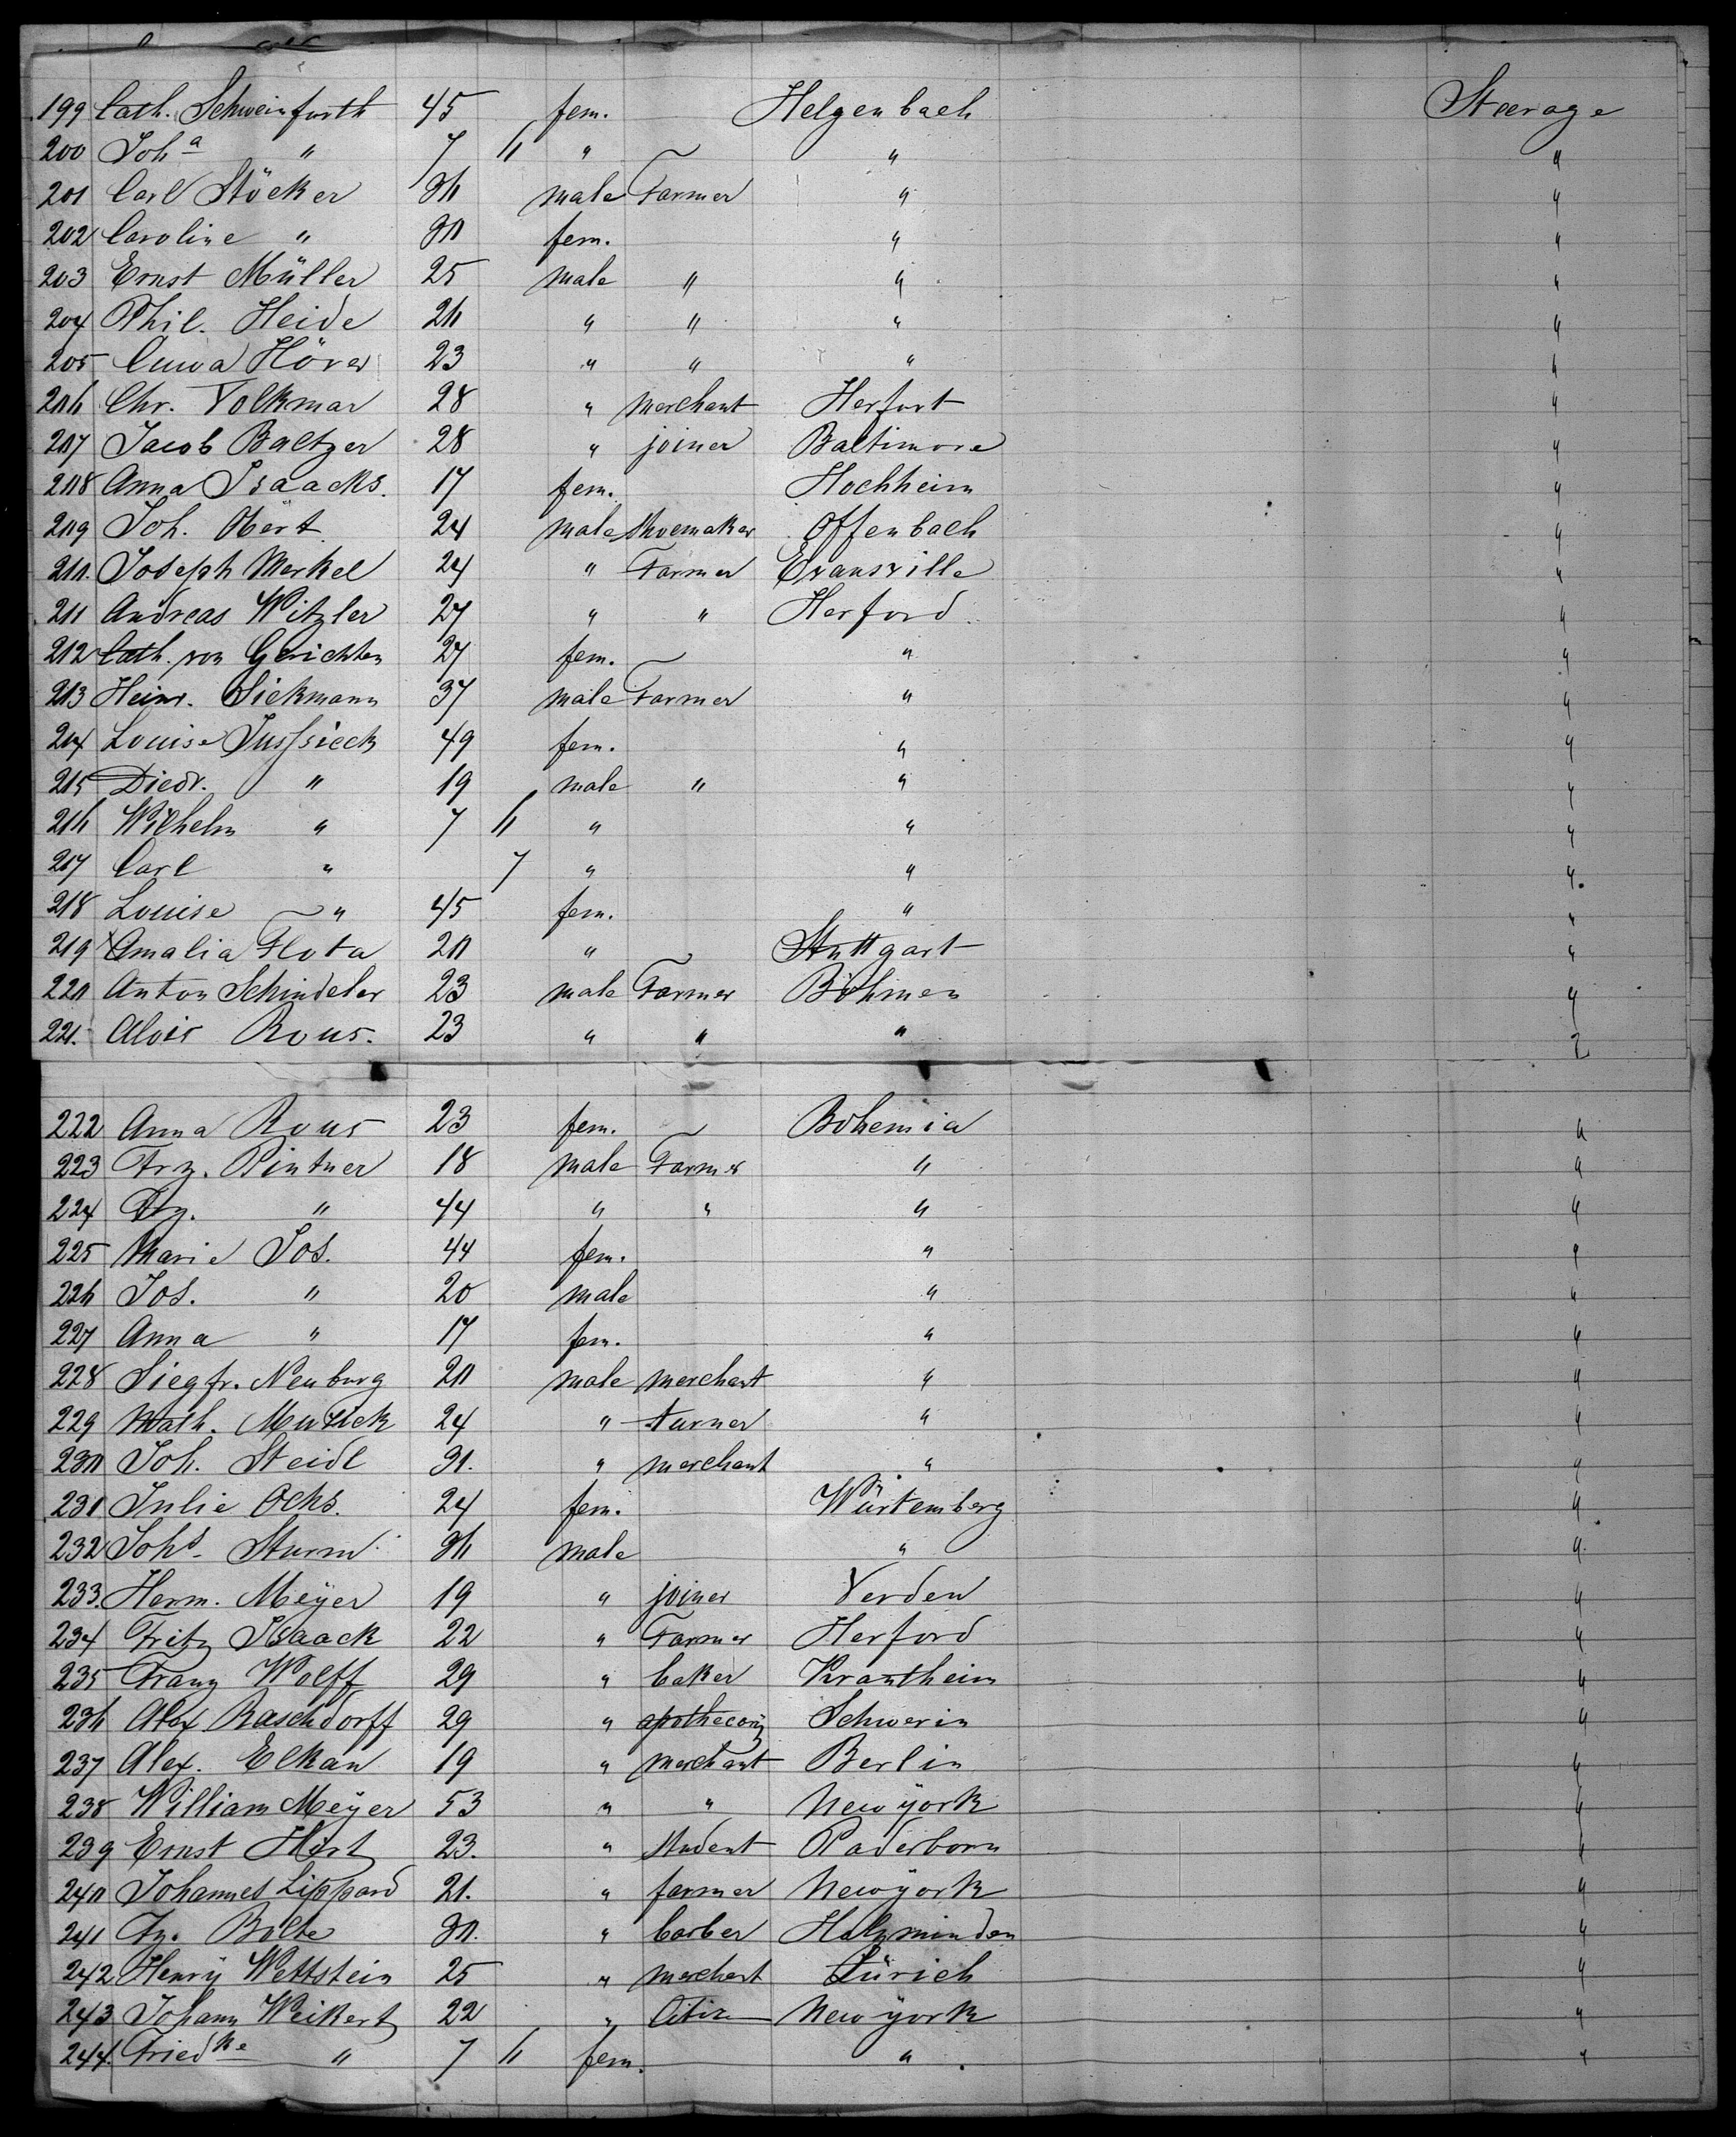 199 Cath. Schweinfurth 45 fem. Helgenbach Steerage
200 Joh.a " 7 6 " " "
201 Carl Stöcker 36 male Farmer " "
202 Caroline " 30 fem. " "
203 Ernst Müller 25 male " " "
204 Phil. Heide 26 " " " "
205 Höver 23 " " " "
206 Chr. Volkmar 28 " merchant Herfort "
207 Jacob Baltzer 28 " joiner Baltimore "
208 Anna Isaacks. 17 fem. Hochheim "
209 Joh. Obert 24 male Shoemaker Offenbach "
210. Joseph Merkel 24 " Farmer Evansville "
211 Andreas Witzler 27 " " Herford "
212 Cath. von Gerichten 27 fem. " "
213 Heinr. Siekmann 37 male Farmer " "
214 Louise Jussieck 49 fem. " "
215 Diedr. " 19 male " " "
216 Wilhelm " 7 6 " " "
217 Carl " 7 " " "
218 Louise " 45 fem. " "
219 Amalia Flota 20 " Stuttgart "
220 Anton Schindeler 23 male Farmer Böhmen "
221. Alois Rous. 23 " " " "
222 Anna Rous 23 fem. Bohemia "
223 Frz. Pintner 18 male Farmer " "
224 Frz. " 44 " " " "
225 Marie Jos. 44 fem. " "
226 Jos. " 20 male " "
227 Anna " 17 fem. " "
228 Siegfr. Neuburg 20 male merchant " "
229 Math. Musick 24 " turner " "
230 Joh. Steidl 31. " merchant " "
231 Julie Ochs. 24 fem. Würtemberg "
232 Johs. Sturm 36 male " "
233. Herm. Meÿer 19 " joiner Verden "
234 Fritz Isaack 22 " Farmer Herford "
235 Franz Wolff 29 " baker Krautheim "
236 Alex Raschdorff 29 " apothecary Schwerin "
237 Alex. Elkan 19 " merchant Berlin "
238 William Meÿer 53 " " New ÿork "
239 Ernst 23. " Student Paderborn "
240 Johannes Lippard 21. " farmer New ÿork "
241 Fz. Bolte 30. " barber Holzminden "
242 Henrÿ Wettstein 25 " merchant Zürich "
243 Johann Weikert 22 " New ÿork "
244. Friedke " 7 6 fem. " "